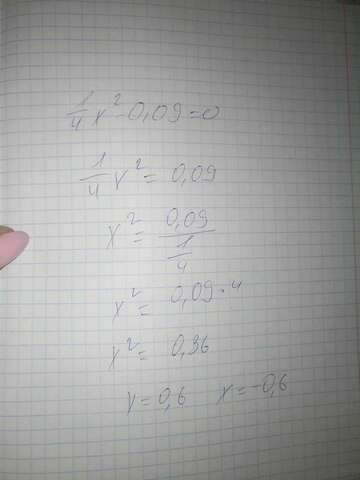 1/4 x² - 0,09 = 0
1/4 x² = 0,09
x² = 0,09 / 1/4
x² = 0,09 · 4
x² = 0,36
x = 0,6 x = -0,6